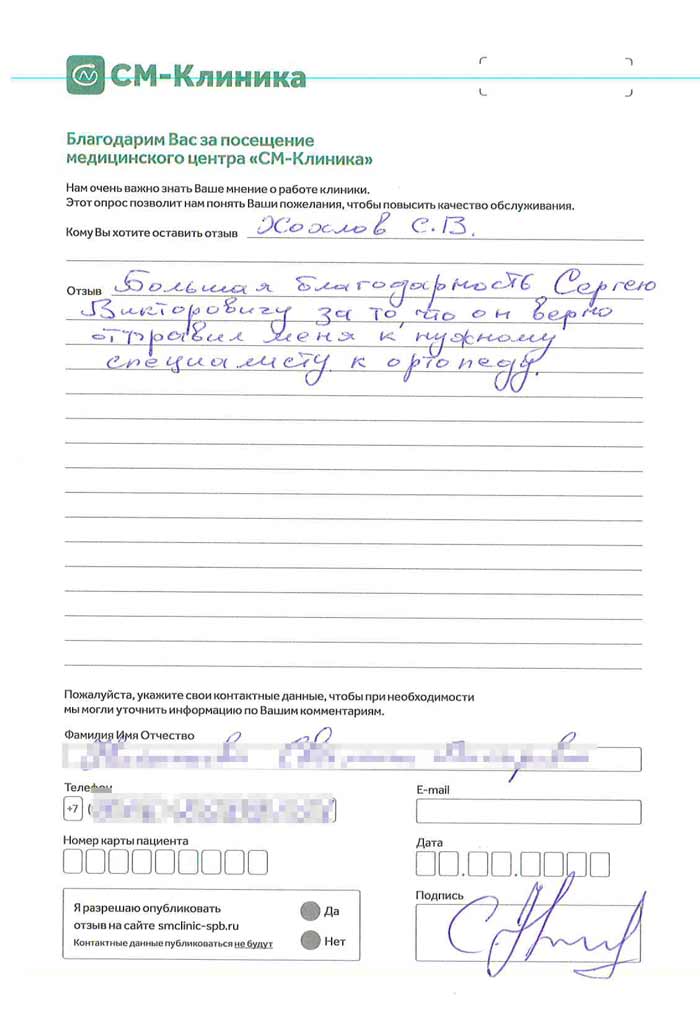 СМ-Клиника
Благодарим Вас за посещение
медицинского центра «СМ-Клиника»
Нам очень важно знать Ваше мнение о работе клиники.
Этот опрос позволит нам понять Ваши пожелания, чтобы повысить качество обслуживания.
Кому Вы хотите оставить отзыв Хохлов С.В.
Отзыв Большая благодарность Сергею
Викторовичу за то, что он верно
отправил меня к нужному
специалисту к ортопеду.
Пожалуйста, укажите свои контактные данные, чтобы при необходимости
мы могли уточнить информацию по Вашим комментариям.
Фамилия Имя Отчество
Телефон
+7 (
E-mail
Номер карты пациента
Дата
Подпись
Я разрешаю опубликовать
отзыв на сайте smclinic-spb.ru
Контактные данные публиковаться не будут
Да
Нет